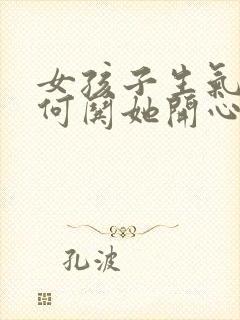 女孩子生氣
何関她開心
孔波